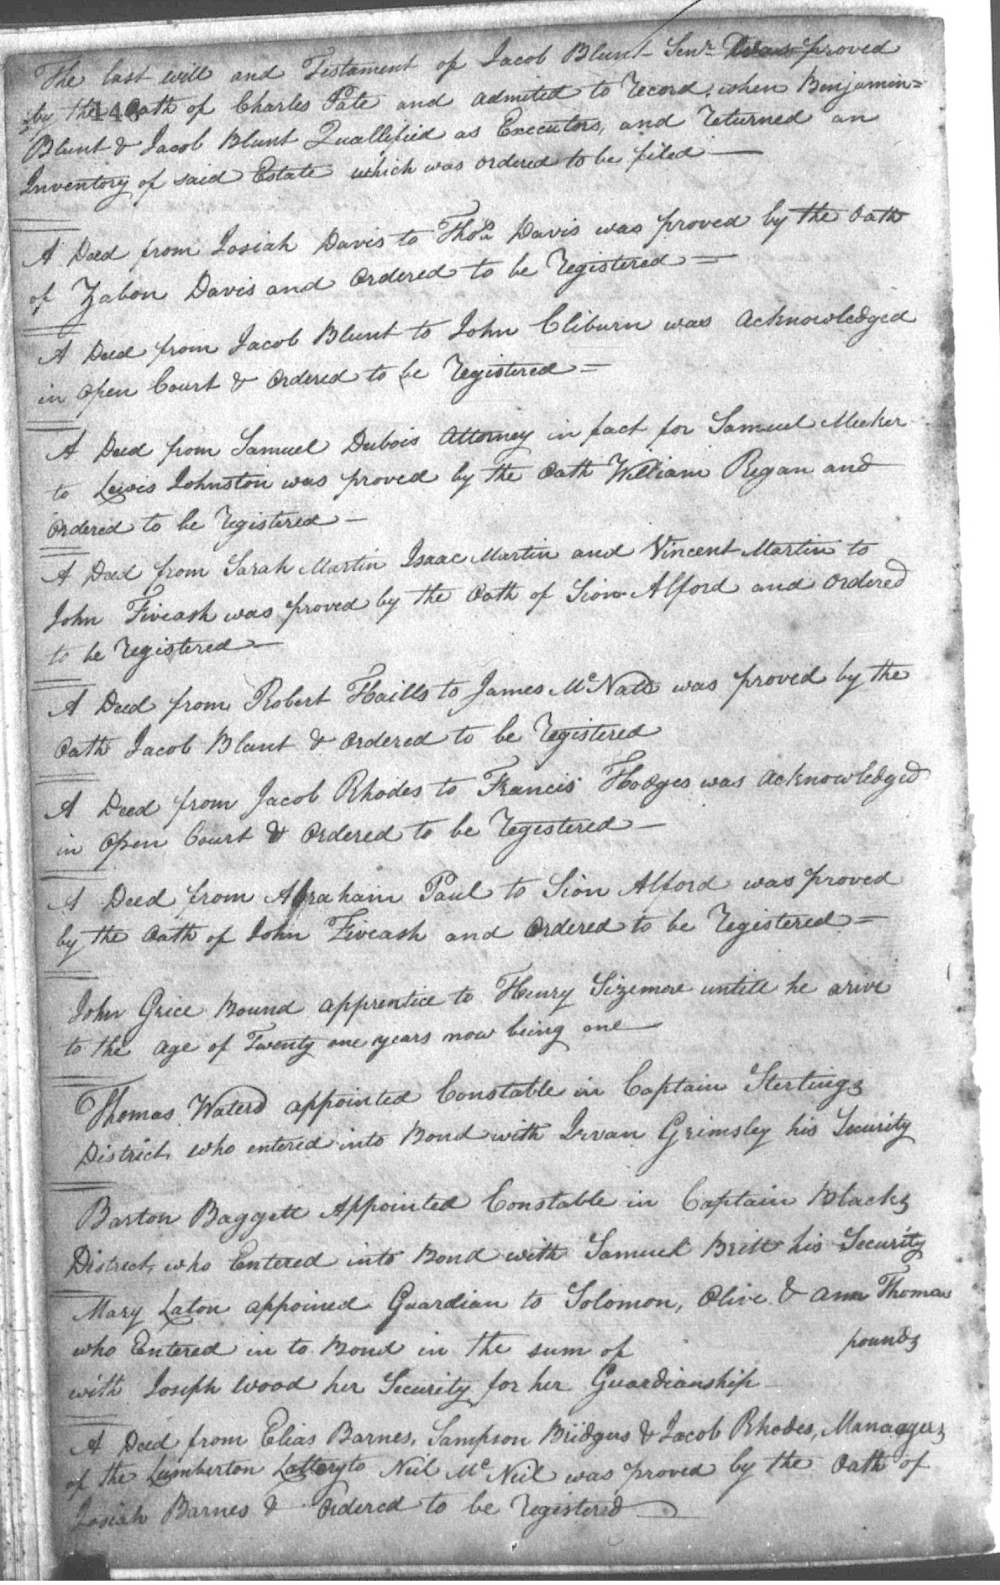 The last will and Testament of Jacob Blunt Senr was proved
by the Oath of Charles Pate and admited to record, when Benjamin=
446
Blunt & Jacob Blunt Quallified as Executors, and returned an
Inventory of said Estate which was ordered to be filed —
A Deed from Josiah Davis to Thos Davis was proved by the Oath
of Zabon Davis and Ordered to be registered =
A Deed from Jacob Blunt to John Cliburn was acknowledged
in open Court & Ordered to be registered =
A Deed from Samuel Dubois Attorney in fact for Samuel Meeker
to Lewis Johnston was proved by the Oath William Regan and
Ordered to be registered —
A Deed from Sarah Martin Isaac Martin and Vincent Martin to
John Fiveash was proved by the Oath of Sion Alford and Ordered
to be registered —
A Deed from Robert Haills to James McNatt was proved by the
Oath Jacob Blunt & Ordered to be registered
A Deed from Jacob Rhodes to Francis Hodges was acknowledged
in Open Court & Ordered to be regestered —
A Deed from Abraham Paul to Sion Alford was proved
by the Oath of John Fiveash and Ordered to be registered =
John Grice Bound apprentice to Henry Sizemore untill he arive
to the age of Twenty one years now being one —
Thomas Waters appointed Constable in Captain Sterlings
District, who entered into Bond with Irvan Grimsley his Security
Barton Baggett Appointed Constable in Captain Blacks
District, who Entered into Bond with Samuel Britt his Security
Mary Laton appoined Guardian to Solomon, Olive & Ann Thomas
who Entered in to Bond in the sum of pounds
with Joseph Wood her Security for her Guardianship
A Deed from Elias Barnes, Sampson Bridgers & Jacob Rhodes, Managers
of the Lumberton Lottery to Neil McNeil was proved by the Oath of
Josiah Barnes & Ordered to be registered —